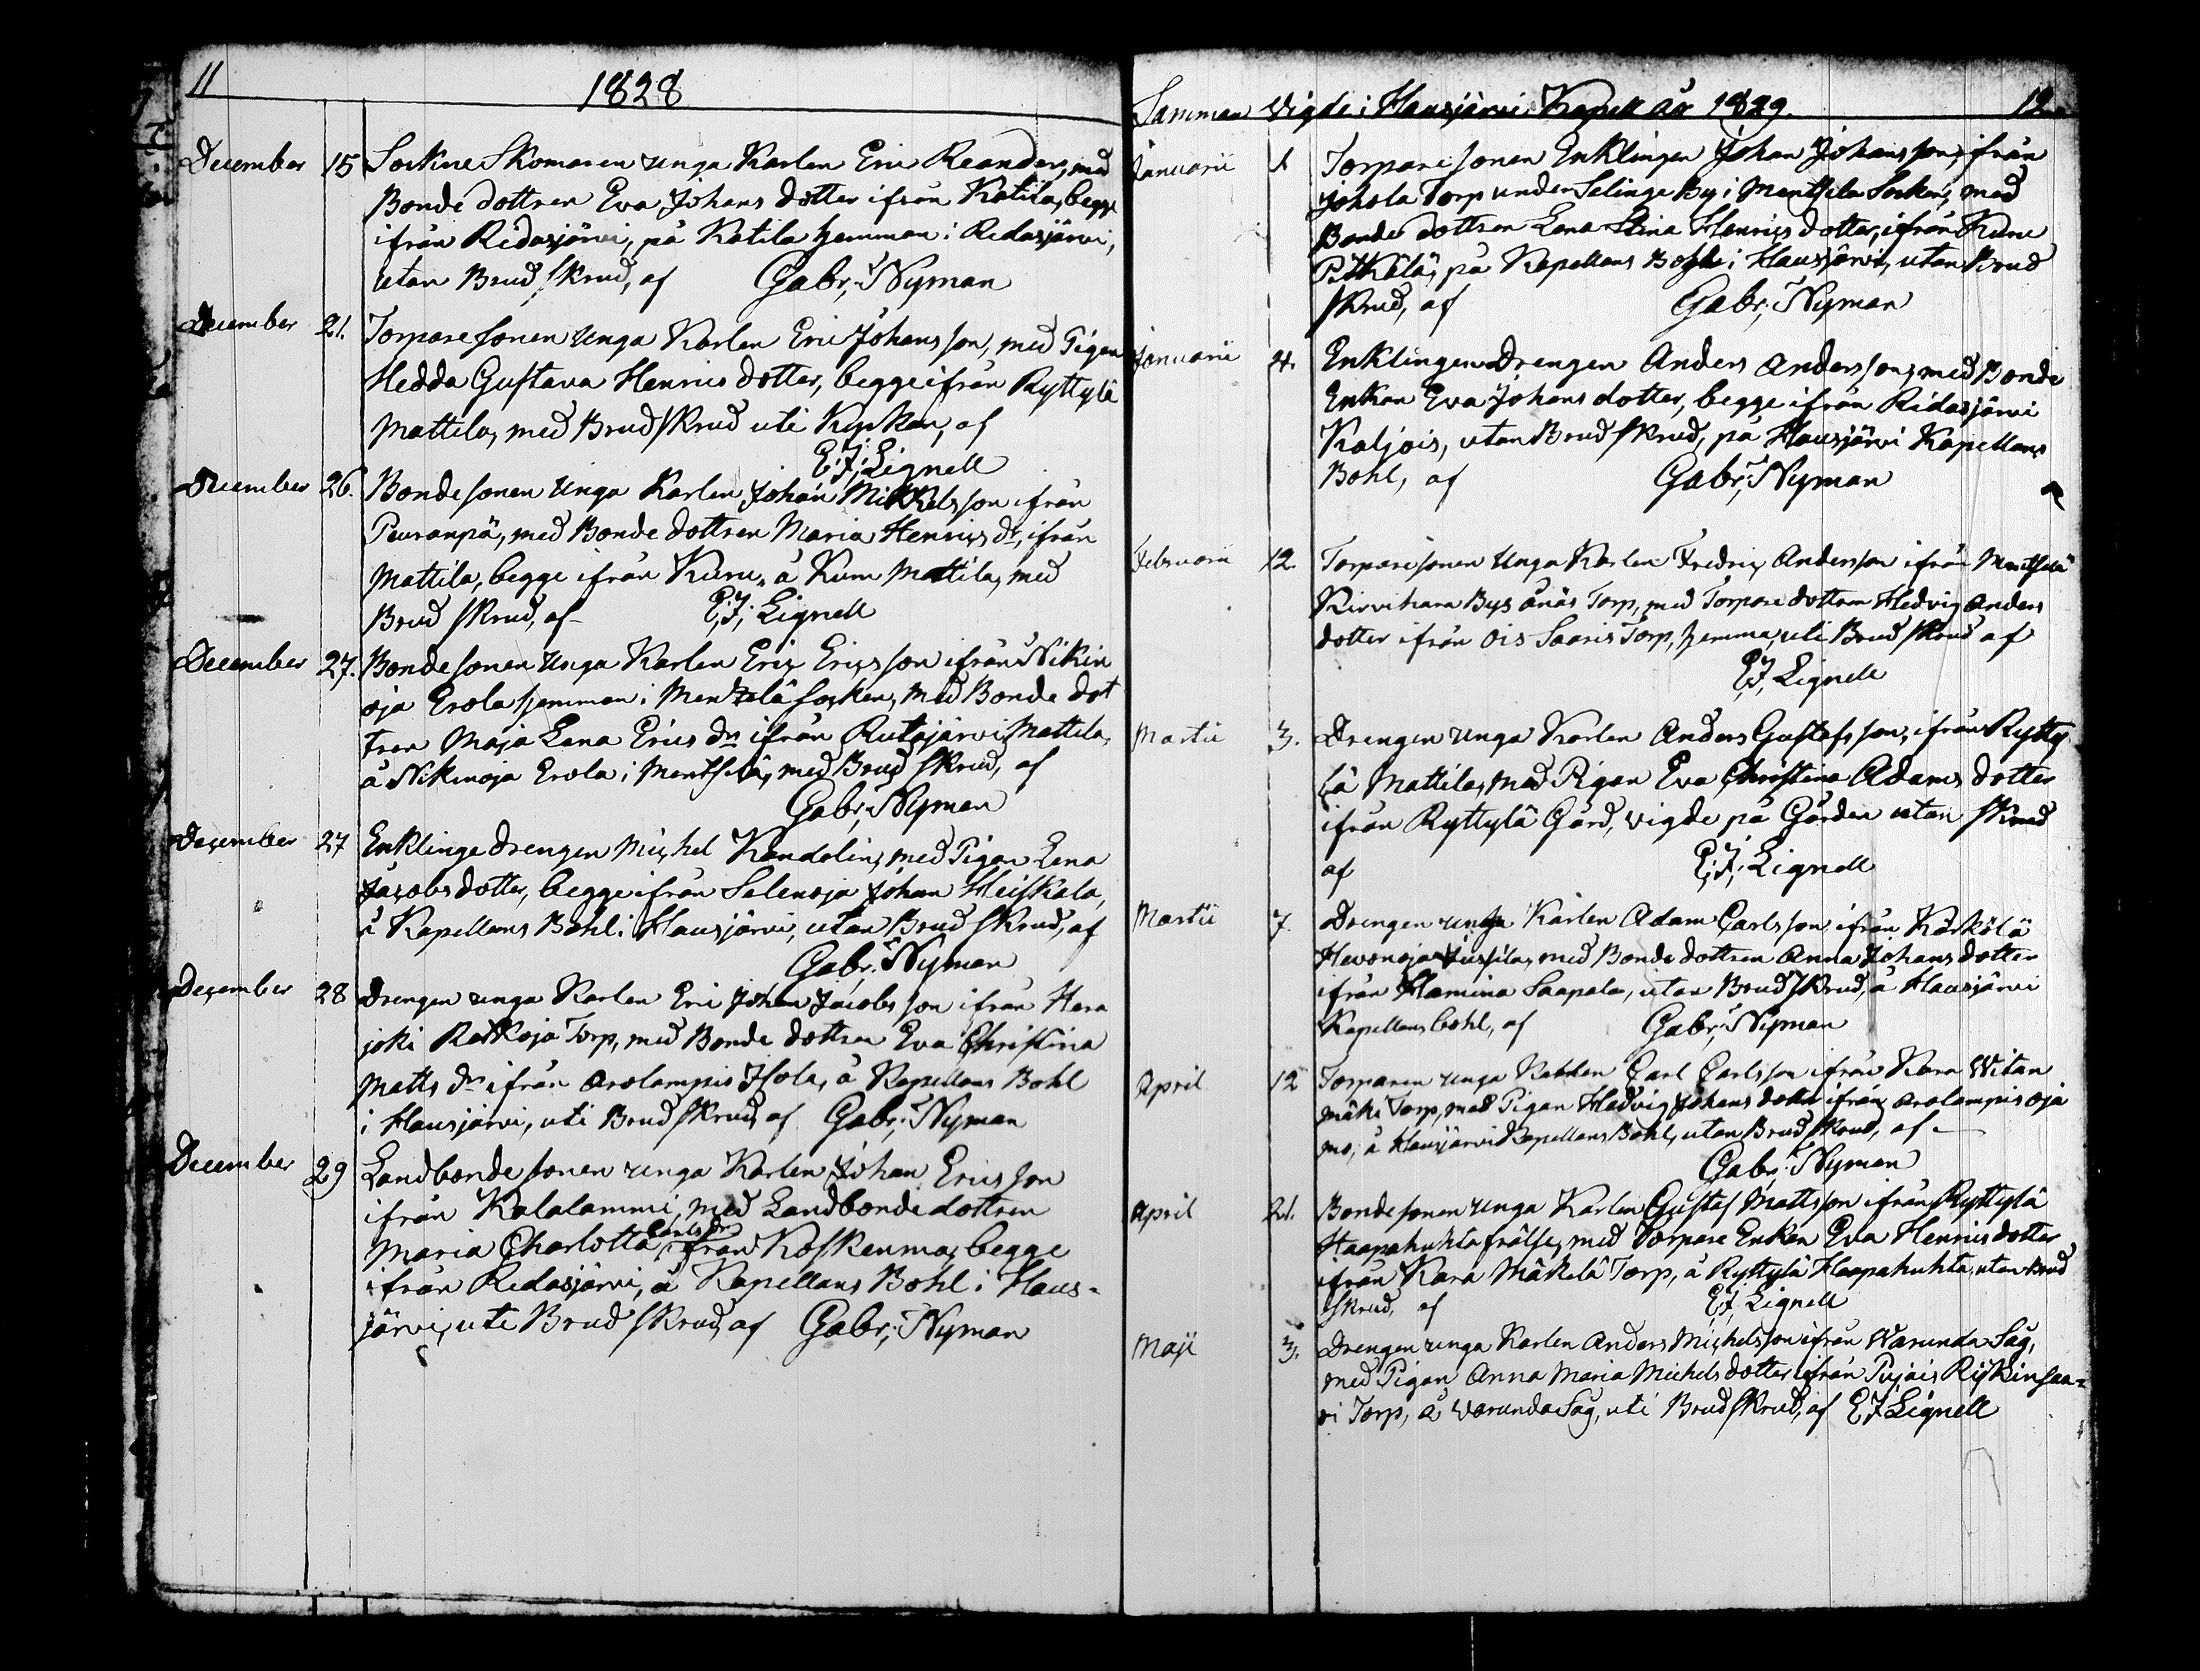 11
1828
December 15 Sockne Skomaren unga Karlen Eric Reander, med
Bonde dottren Eva Johans dotter ifrån Katila, begge
ifrån Ridasjärvi, på Katila hemman i Ridasjärvi,
utan Brud skrud, af Gabr; Nyman
December 21. Torpare sonen unga Karlen Eric Johansson, med Pigan
Hedda Gustava Henrics dotter, begge ifrån Ryttylä
Mattila, med Brudskrud uti Kyrkan, af
E; J; Lignell
December 26. Bondesonen unga Karlen Johan Mikkelsson ifrån
Peuranpä, med Bonde dottren Maria Henrics dr, ifrån
Mattila, begge ifrån Kuru, å Kuru Mattila, med
Brud skrud, af E; J; Lignell
December 27. Bondesonen unga Karlen Eric Ericsson ifrån Nikin
oja Erola hemman i Mentzelä socken, med Bonde dot
tren Maja Lena Erics dr ifrån Rutajärvi Mattila,
å Nikinoja Erola i Mentselä, med Brud skrud, af
Gabr; Nyman
December 27 Enklinge drengen Michel Kandolin, med Pigan Lena
Jacobs dotter, begge ifrån Selenoja Johan Heiskala,
å Kapellans Bohl i Hausjärvi, utan Brud skrud, af
Gabr; Nyman
December 28 Drengen unga Karlen Eric Johan Jacobsson ifrån Hera
joki Ratkoja Torp, med Bonde dottren Eva Christina
Matts dr ifrån Arolampis Hola, å Kapellans Bohl
i Hausjärvi, uti Brud skrud, af Gabr; Nyman
December 29 Landbonde sonen unga Karlen Johan Ericsson
ifrån Kalalammi, med Landbonde dottren
Maria Charlotta Carls dr ifrån Koskenma, begge
ifrån Ridasjärvi, å Kapellans Bohl i Haus-
järvi, uti Brud skrud, af Gabr; Nyman
Samman Vigde i Hausjärvi Kapell År 1829. 12
Januarii 1 Torpare sonen Enklingen Johan Johansson, ifrån
Johola Torp under Selinge By i Mentselä Socken, med
Bonde dottren Lena Stina Henrics dotter, ifrån Kuru
Pitkälä, på Kapellans Bohl i Hausjärvi, utan Brud
skrud, af Gabr; Nyman
Januarii 4. Enklingen Drengen Anders Andersson, med Bonde
Enkan Eva Johans dotter, begge ifrån Ridasjärvi
Kaljois, utan Brudskrud, på Hausjärvi Kapellans
Bohl, af Gabr; Nyman
Februarii 12. Torparesonen unga Karlen Fredric Andersson ifrån Mentselä
Kirvihara Bys änäs Torp, med Torpare dottren Hedvig Anders
dotter ifrån Ois Saaris Torp, hemma, uti Brud skrud af
E; J; Lignell
Martii 3. Drengen unga Karlen Anders Gustafsson, ifrån Rytty
lä Mattila, med Pigan Eva Christina Adams dotter
ifrån Ryttylä Gård, vigde på Gården utan skrud
af E; J; Lignell
Martii 7. Drengen unga Karlen Adam Carlsson, ifrån Kärkölä
Hevonoja Jussila, med Bonde dottren Anna Johans dotter
ifrån Hamina Saapala, utan Brudskrud, å Hausjärvi
Kapellans bohl, af Gabr; Nyman
April 12 Torparen unga Karlen Carl Carlsson ifrån Kara Witan
mäki Torp, med Pigan Hedvig Johans dotter ifrån Arolampis oja
mo, å Hausjärvi Kapellans Bohl, utan Brud skrud, af
Gabr; Nyman
April 21. Bondesonen unga Karlen Gustaf Mattsson ifrån Ryttylä
Haapahuhta frälse, med Torpare Enkan Eva Henrics dotter
ifrån Kara Mäkelä Torp, å Ryttylä Haapahuhta, utan Brud
skrud, af E; J; Lignell
Maji 3. Drengen unga Karlen Anders Michelsson ifrån Warunda Såg,
med Pigan Anna Maria Michels dotter ifrån Pujais Rijkinsaa-
ri Torp, å Warunda Såg, uti Brudskrud, af E J Lignell